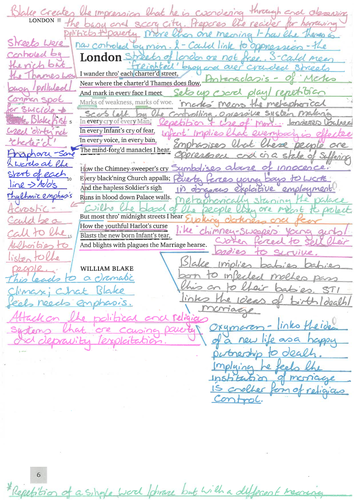 Blake creates the impression that he is wandering through or observing
the busy and seen city. Prepares the reader for
LONDON
poverty. More than one meaning to how the Thames is
now controlled by men. 1 - Could link to oppression - the
Streets were
controlled by
the rich but
the Thames was
busy/polluted.
Common spot
for suicide →
London
Streets of London are not free. 2 - Could mean
busy and are crowded streets
I wander thro' each charter'd street,
Near where the charter'd Thames does flow,
And mark in every face I meet
Marks of weakness, marks of woe.
Antanaclasis - of 'Marks'
Sets up word play/repetition
'marks' means the metaphorical
scars left by the controlling oppressive system
Blake first
used 'dirty' not
'charter'd'
In every cry of every Man,
In every Infant's cry of fear,
In every voice, in every ban,
The mind-forg'd manacles I hear.
Repetition + use of 'man'
'Infant' implies that everybody is affected
Emphasises that these people are
oppressed and in a state of suffering
Anaphora - Same
words at the
start of each
line → adds
rhythmic emphasis
How the Chimney-sweeper's cry
Every black'ning Church appalls;
And the hapless Soldier's sigh
Runs in blood down Palace walls.
Symbolises abuse of innocence.
Poverty forces young boys to work
in dangerous exploitive 'employment'
Metaphorically staining the palace
with the blood of the people they are meant to protect
Acrostic -
Could be a
call to the
authorities to
listen to the
people.
But most thro' midnight streets I hear
How the youthful Harlot's curse
Blasts the new born Infant's tear,
And blights with plagues the Marriage hearse.
Evoking darkness and fear
like 'chimney-sweepers' young girls/
women forced to sell their
bodies to survive.
WILLIAM BLAKE
This leads to a climatic
climax; what Blake
feels needs emphasis.
Blake implies babies
born to infected mothers pass
this on to their babies. STI
links the ideas of birth/death/
marriage
Attack on the political and religious
systems that are causing poverty
and depravity/exploitation.
Oxymoron - links the idea
of a new life as a happy
partnership to death.
Implying he feels the
institution of marriage
is another form of religious
control.
6
*Repetition of a single word/phrase but with a different meaning